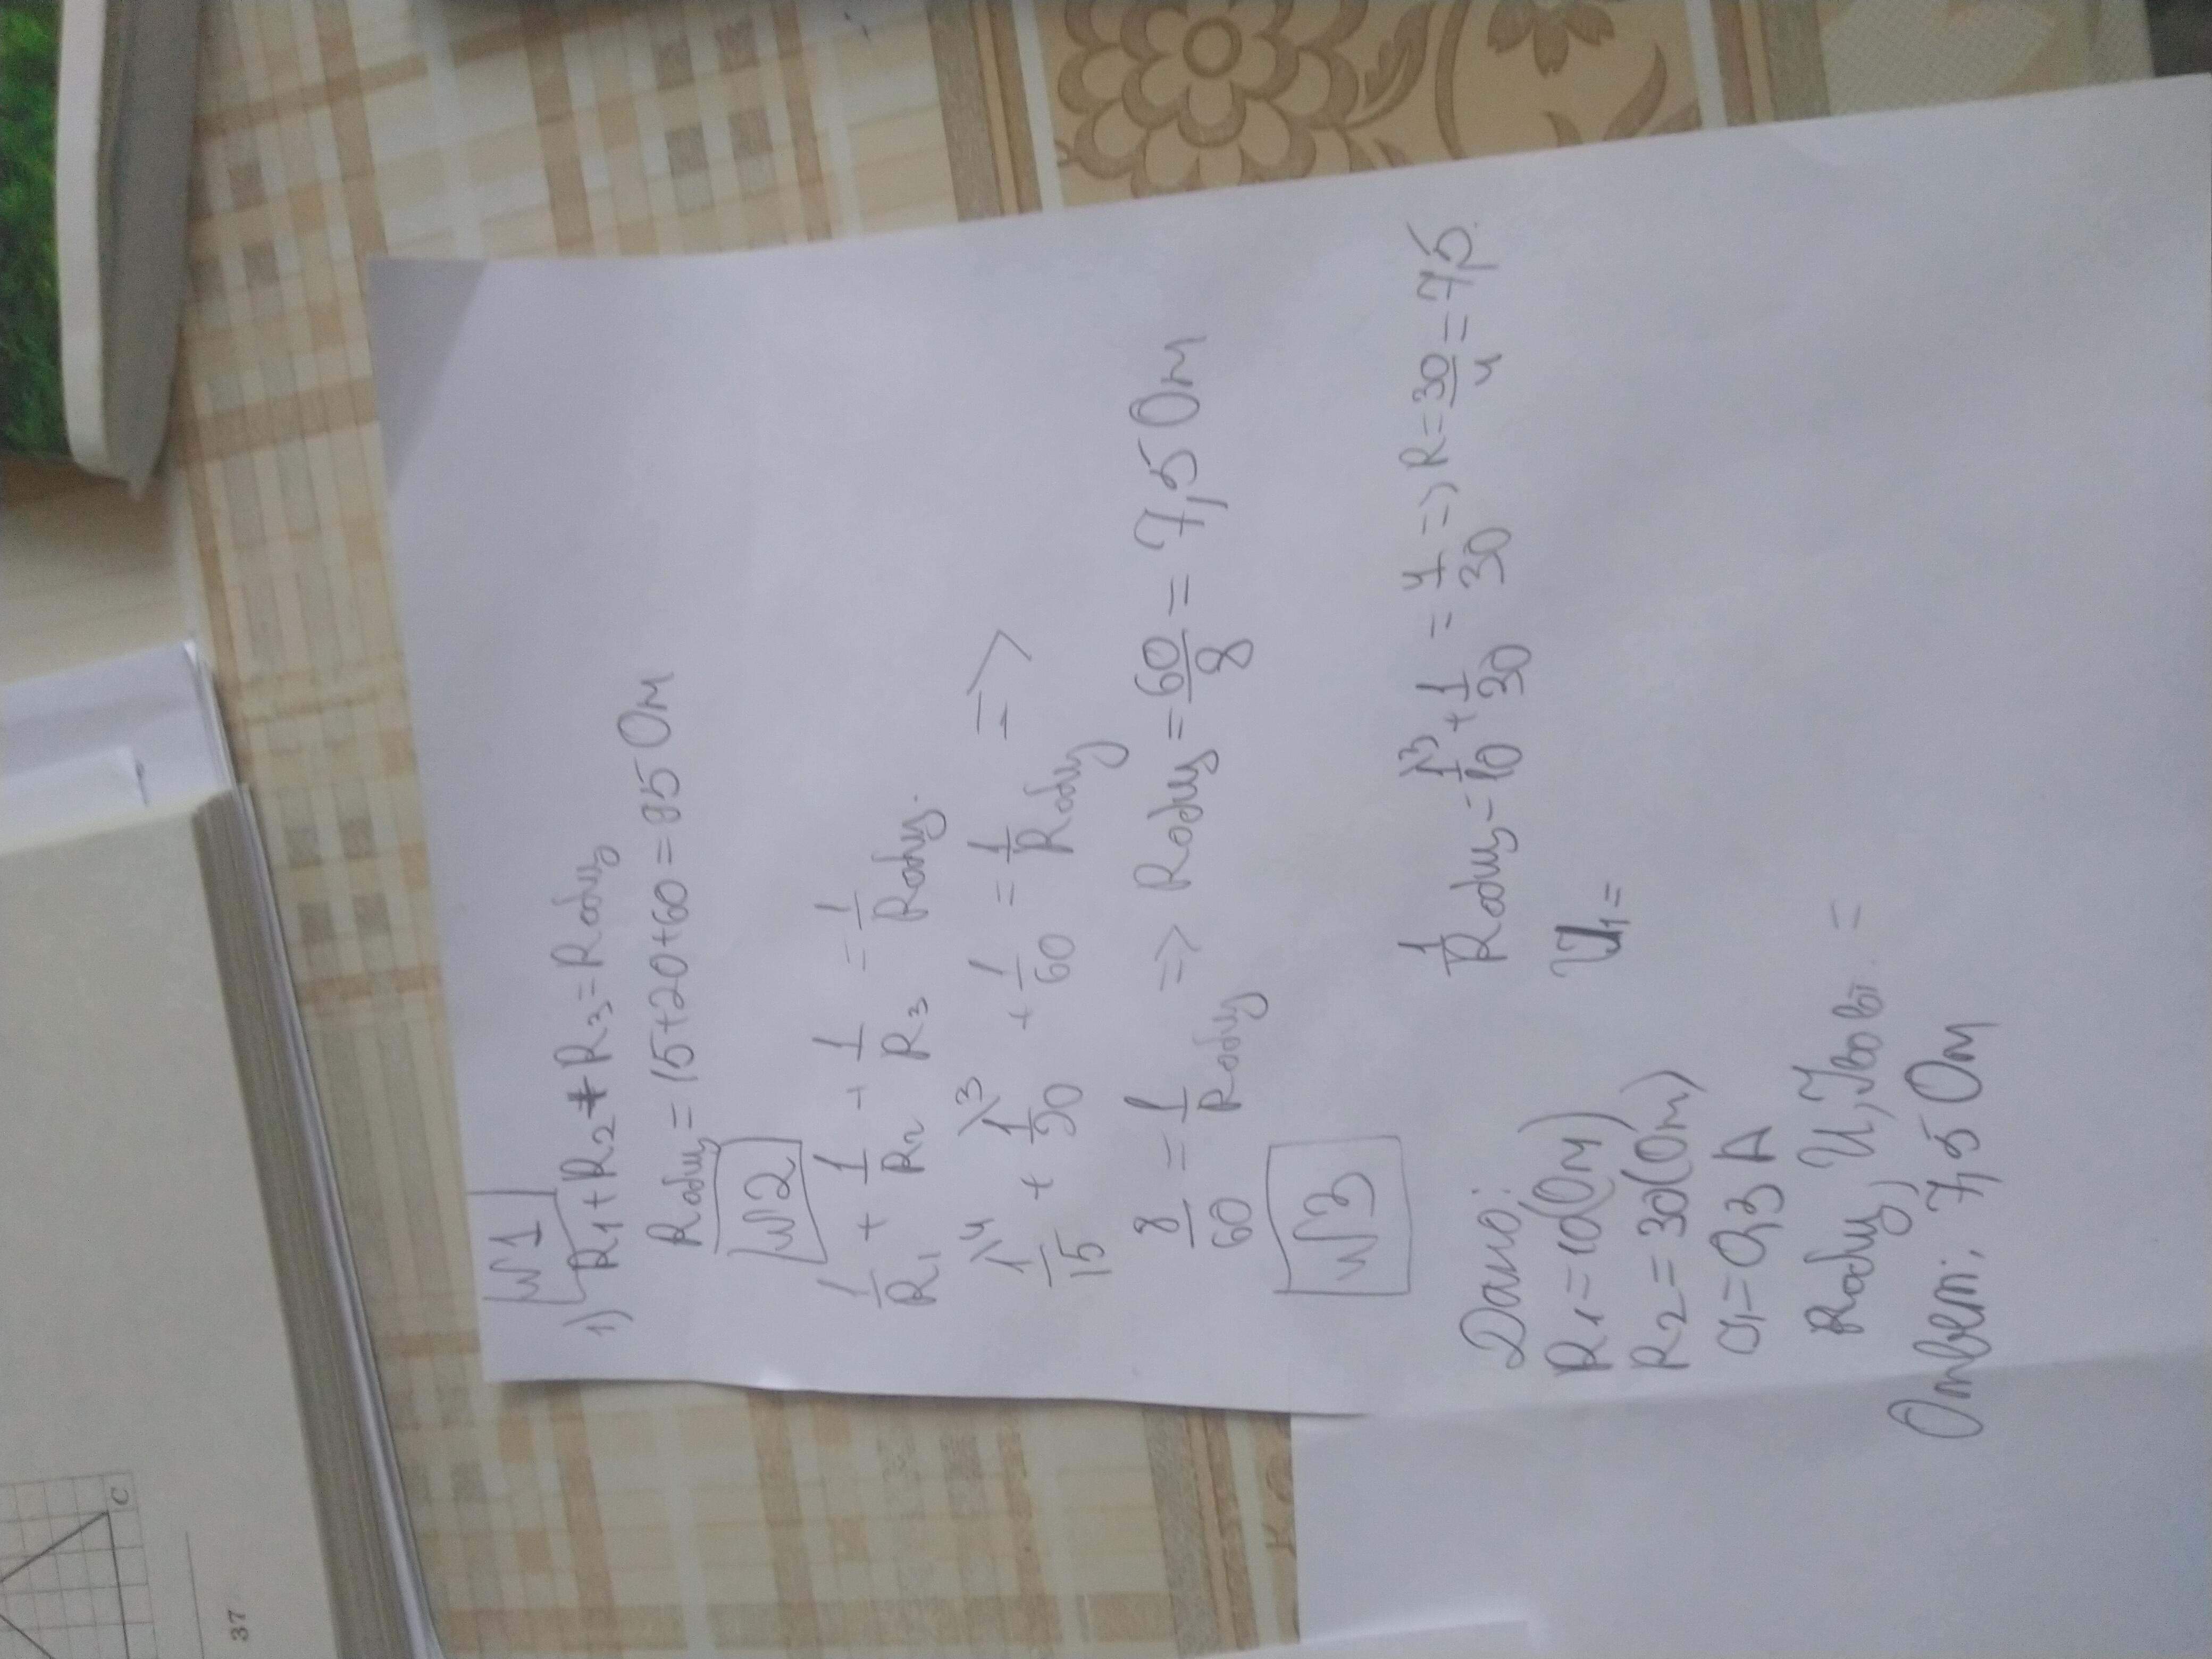 №1
1) R₁+R₂+R₃=Rобщ
Rобщ=15+20+60=95 Ом
№2
1/R₁ + 1/R₂ + 1/R₃ = 1/Rобщ.
1\4/15 + 1\3/20 + 1/60 = 1/Rобщ =>
8/60 = 1/Rобщ => Rобщ = 60/8 = 7,5 Ом
№3
Дано:
R₁=10(Ом)
R₂=30(Ом)
J₁=0,3 А
Rобщ, U, Jвы. =
1/Rобщ = 1\3/10 + 1/30 = 4/30 => R = 30/4 = 7,5.
U₁=
Ответ: 7,5 Ом
C
37